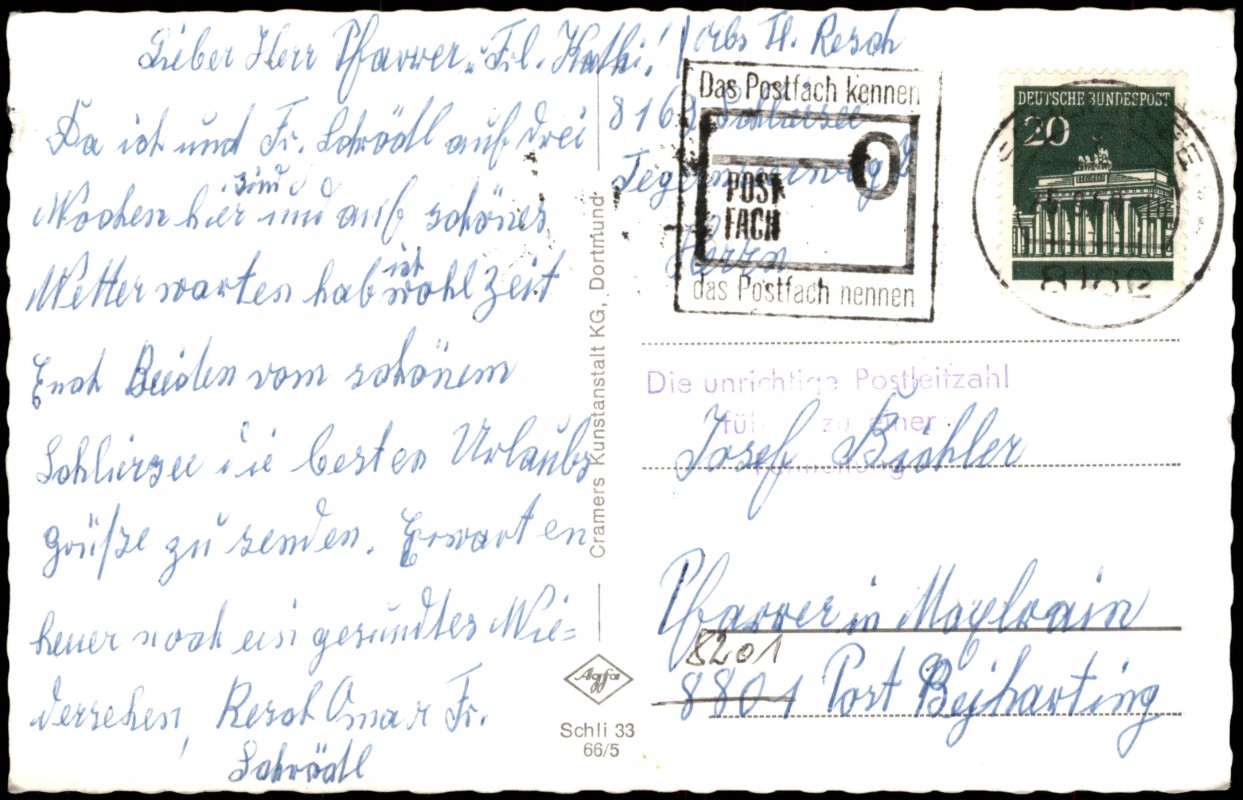 Lieber Herr Pfarrer u. Frl. Kathi!
Da ich und Fr. Schrödl auf drei
Wochen hier sind und auf schönes
Wetter warten hab ich wohl Zeit
Euch Beiden vom schönem
Schliersee die besten Urlaubs
grüße zu senden. Erwarten
heuer noch ein gesundtes Wie=
dersehen, Resch Omar Fr.
Schrödl
Abs Th. Resch
8162 Schliersee
Tegernseerweg
Herrn
Das Postfach kennen
POST-
FACH
das Postfach nennen
DEUTSCHE BUNDESPOST
20
Die unrichtige Postleitzahl
zu einer
Josef Bichler
Pfarrer in Moxlrain
8201
8801 Post Beiharting
Cramers Kunstanstalt KG, Dortmund
Agfa
Schli 33
66/5